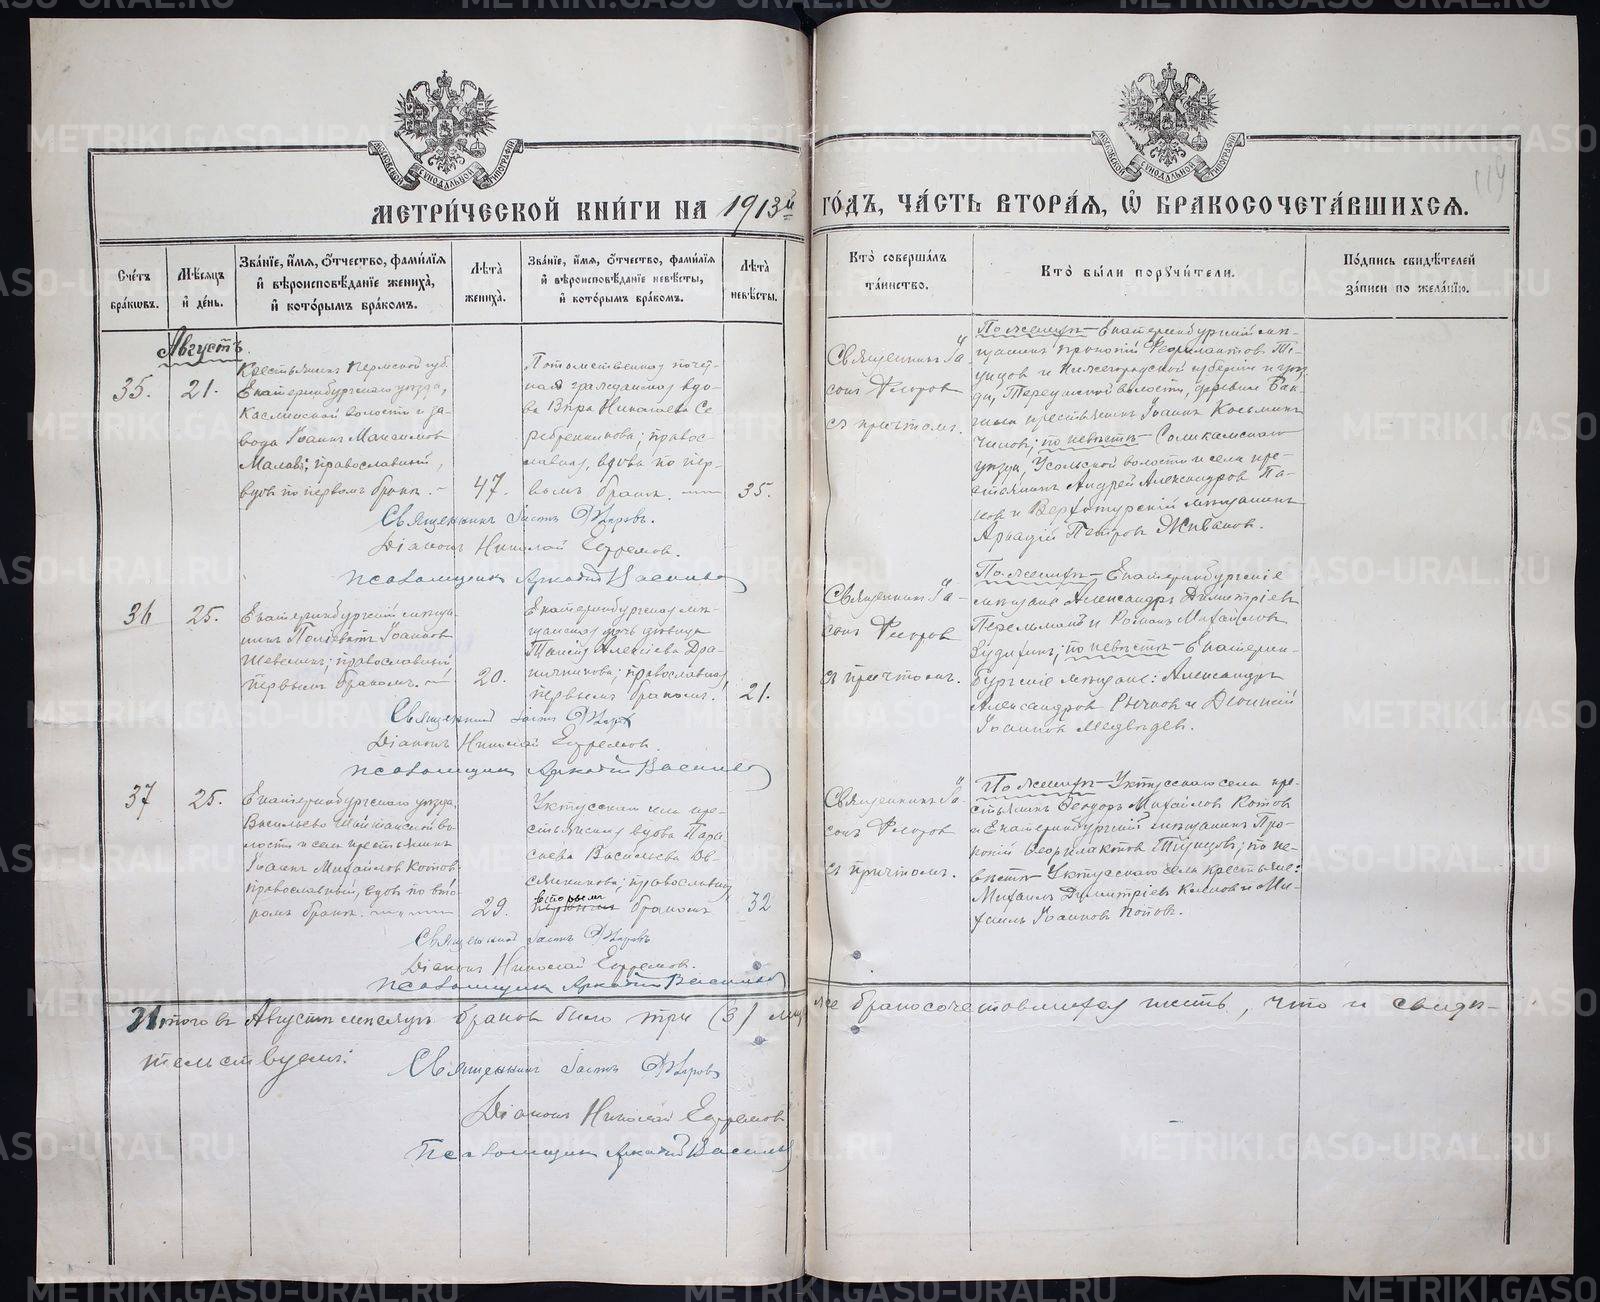 МЕТРИЧЕСКОЙ КНИГИ НА 1913й
ГОДЪ, ЧАСТЬ ВТОРАЯ, Ѡ БРАКОСОЧЕТАВШИХСЯ.
119
МОСКОВСКОЙ СѴНОДАЛЬНОЙ ТИПОГРАФІИ
МОСКОВСКОЙ СѴНОДАЛЬНОЙ ТИПОГРАФІИ
Счетъ браковъ.
Мѣсяцъ и день.
Званіе, имя, отчество, фамилія
и вѣроисповѣданіе жениха,
и которымъ бракомъ.
Лѣта жениха.
Званіе, имя, отчество, фамилія
и вѣроисповѣданіе невѣсты,
и которымъ бракомъ.
Лѣта невѣсты.
Кто совершалъ
таинство.
Кто были поручители.
Подпись свидѣтелей
записи по желанію.
Августъ
35.
21.
Крестьянинъ Пермской губ.
Екатеринбургскаго уѣзда,
Каслинской волости и за-
вода Іоаннъ Максимовъ
православный,
вдовъ по первомъ бракѣ.
47.
Потомственная почет-
ная гражданка вдо-
ва Вѣра Николаева Се-
ребренникова; правос-
лавная, вдова по пер-
вомъ бракѣ.
35.
Священникъ Іа-
сонъ Флоровъ
съ причтомъ.
По женихѣ – Екатеринбургскій мѣ-
щанинъ Прокопій Феофилактовъ Ті-
унцовъ и Нижегородской губерніи и уѣз-
да, волости, деревни
крестьянинъ Іоаннъ Косьминъ
по невѣстѣ – Соликамскаго
уѣзда, Усольской волости и села кре-
стьянинъ Андрей Александровъ Па-
и Верхотурскій мѣщанинъ
Аркадій Петровъ
Священникъ Іасонъ Флоровъ.
Діаконъ Николай Ефремовъ.
Псаломщикъ Аркадій Васильевъ
36
25.
Екатеринбургскій мѣща-
нинъ Іоанновъ
православный,
первымъ бракомъ.
20.
Екатеринбургская мѣ-
щанская дочь дѣвица
Таисія Алексіева Дра-
ничникова; православная
первымъ бракомъ.
21.
Священникъ Іа-
сонъ Флоровъ
съ причтомъ.
По женихѣ – Екатеринбургскіе
мѣщане Александръ Димитріевъ
Перельманъ и Романъ Михайловъ
по невѣстѣ – Екатерин-
бургскіе мѣщане: Александръ
Александровъ Рычковъ и Діонисій
Іоанновъ Медвѣдевъ.
Священникъ Іасонъ Флоровъ
Діаконъ Николай Ефремовъ.
Псаломщикъ Аркадій Васильевъ
37
25.
Екатеринбургскаго уѣзда,
Васильево-Шайтанской во-
лости и села крестьянинъ
Іоаннъ Михайловъ Котовъ
православный, вдовъ по вто-
ромъ бракѣ.
29.
Уктусскаго села кре-
стьянская вдова Пара-
скева Васильева Ов-
сянникова; православная
вторымъ
первымъ бракомъ
32
Священникъ Іа-
сонъ Флоровъ
съ причтомъ.
По женихѣ – Уктусскаго села кре-
стьянинъ Ѳеодоръ Михайловъ Котовъ
и Екатеринбургскій мѣщанинъ Про-
копій Феофилактовъ Тіунцовъ; по не-
вѣстѣ – Уктусскаго села крестьяне:
Михаилъ Димитріевъ и Ми-
хаилъ Іоанновъ Поповъ.
Священникъ Іасонъ Флоровъ
Діаконъ Николай Ефремовъ.
Псаломщикъ Аркадій Васильевъ
Итого въ Августѣ мѣсяцѣ браковъ было три (3) лицъ же бракосочетавшихся шесть, что и свидѣ-
тельствуемъ:
Священникъ Іасонъ Флоровъ
Діаконъ Николай Ефремовъ
Псаломщикъ Аркадій Васильевъ
METRIKI.GASO-URAL.RU